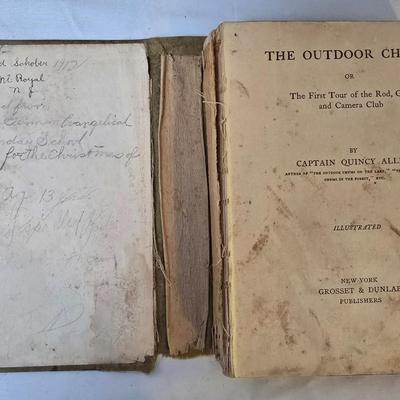 d Schober 1912
Mt Royal
N. J.
d from
German Evangelical
Sunday School
for the Christmas of
Age 13
THE OUTDOOR CH
OR
The First Tour of the Rod, G
and Camera Club
BY
CAPTAIN QUINCY ALL
AUTHOR OF "THE OUTDOOR CHUMS ON THE LAKE," "THE
CHUMS IN THE FOREST," ETC.
ILLUSTRATED
NEW YORK
GROSSET & DUNLAP
PUBLISHERS